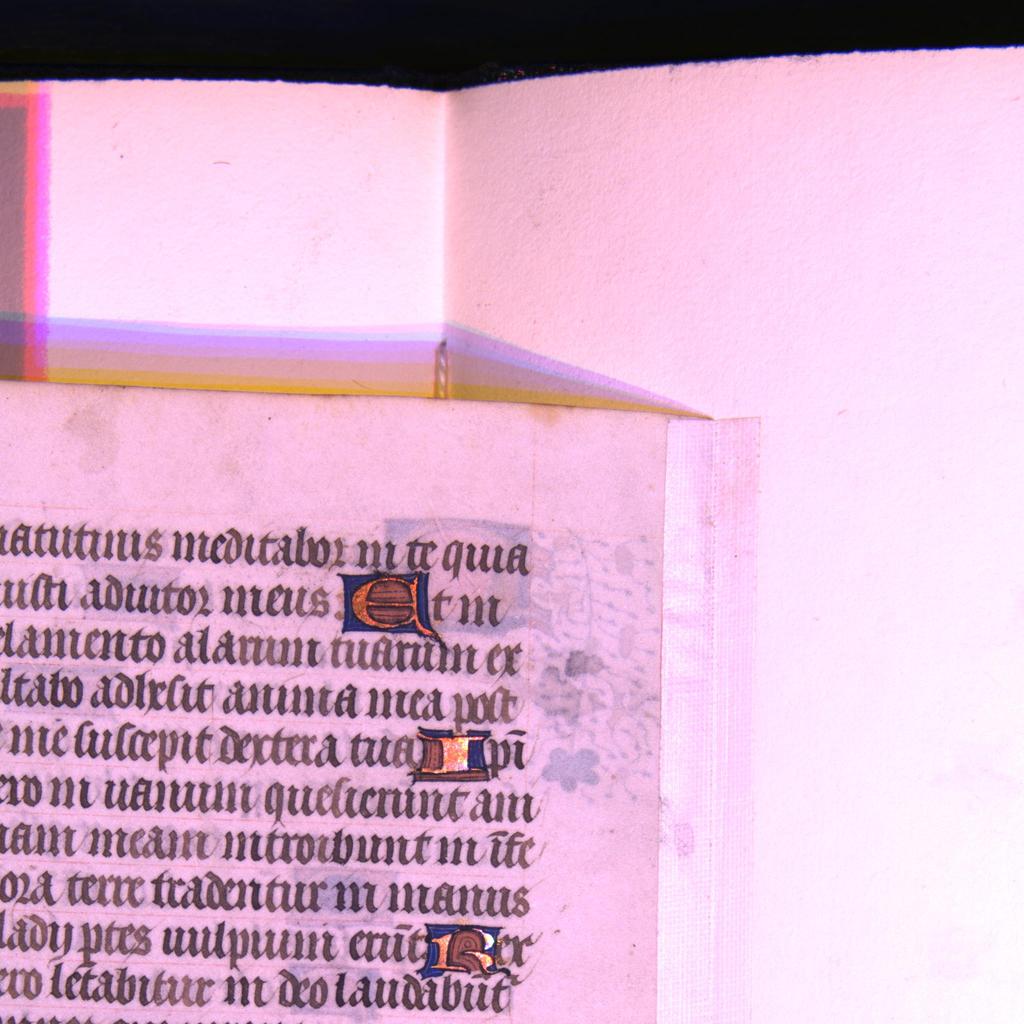 matutinis meditabor in te quia
fuisti adiutor meus. Et in
uelamento alarum tuarum ex
ultabo adhesit anima mea post
te me suscepit dextera tua Ipi̅
uero in uanum quesierunt ani
mam meam introibunt in i̅fe
riora terre tradentur in manus
gladij ꝑtes uulpium eru̅t Rex
uero letabitur in deo laudabu̅t᷑